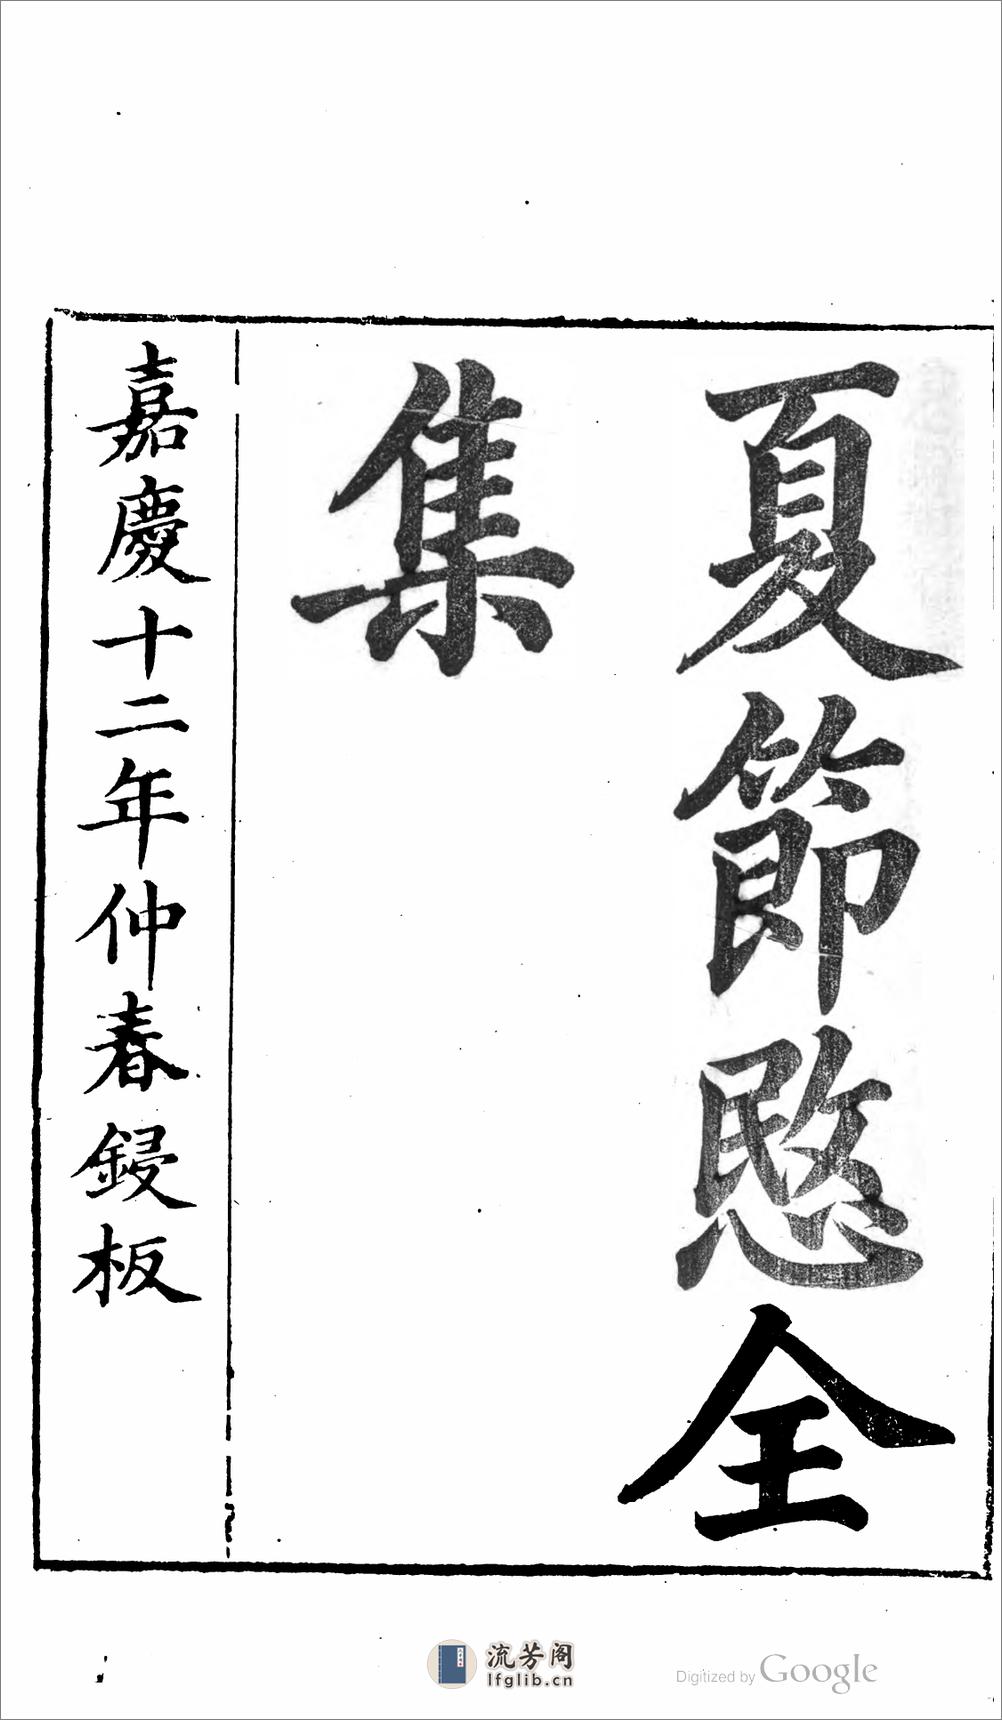 夏節愍全
集
嘉慶十二年仲春鋟板
流芳阁
lfglib.cn
Digitized by Google